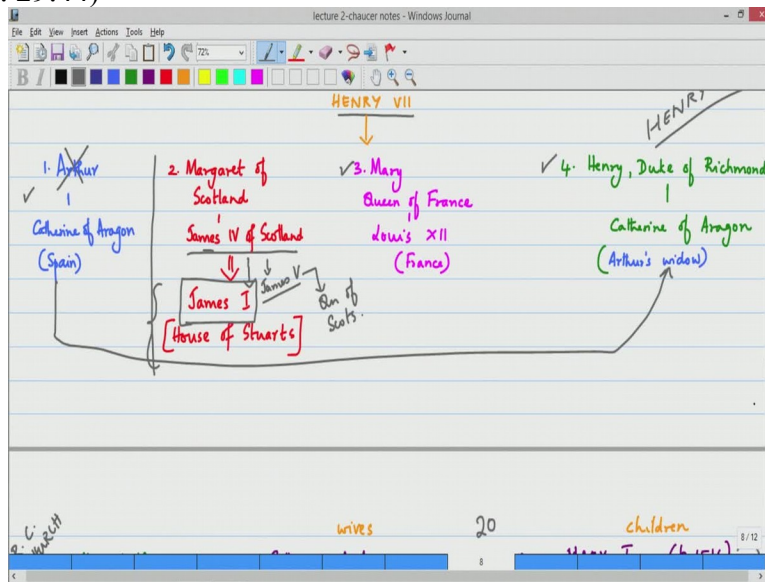 29:44)
lecture 2-chaucer notes - Windows Journal
File Edit View Insert Actions Tools Help
72%
B I
HENRY VII
HENRY
1. Arthur
Catherine of Aragon
(Spain)
2. Margaret of
Scotland
James IV of Scotland
James V
Qn of
Scots.
James I
[House of Stuarts]
3. Mary
Queen of France
Louis XII
(France)
4. Henry, Duke of Richmond
Catherine of Aragon
(Arthur's widow)
R. C.
CHURCH
wives
20
children
8/12
8
Mary I